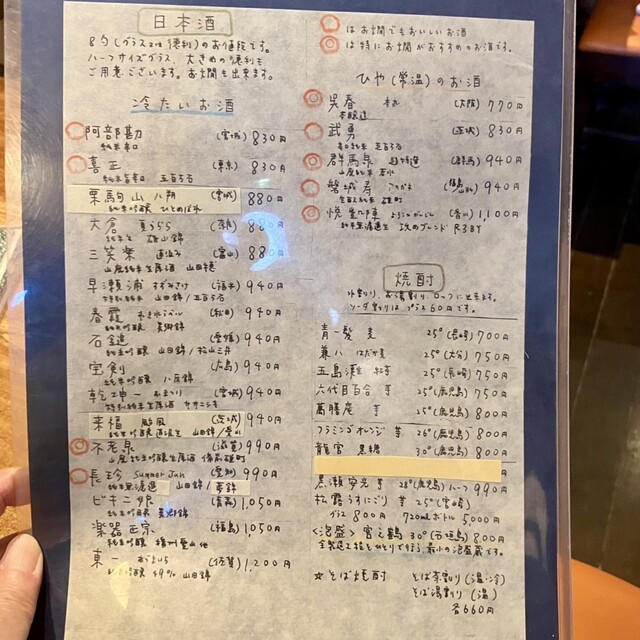 日本酒
8勺(グラス又は徳利)のお値段です。
ハーフサイズグラス、大きめの徳利も
ご用意ございます。お燗も出来ます。
冷たいお酒
阿部勘 (宮城) 830円
純米辛口
喜正 (東京) 830円
純米 五百万石
栗駒山 八朔 (宮城) 880円
純米吟醸 ひとめぼれ
大倉 (奈良) 880円
純米 雄山錦
三笑楽 (富山) 880円
山廃純米生原酒 山田穂
早瀬浦 (福井) 940円
特別純米 山田錦/五百万石
春霞 (秋田) 940円
純米吟醸 美郷錦
石鎚 (愛媛) 940円
純米吟醸 山田錦/松山三井
宝剣 (広島) 940円
純米吟醸 八反錦
乾坤一 (宮城) 940円
特別純米生原酒 ササニシキ
来福 (茨城) 940円
純米吟醸 山田錦/愛山
不老泉 (滋賀) 990円
山廃純米吟醸生原酒 備前雄町
長珍 Summer Jun (愛知) 990円
純米無濾過 山田錦/夢錦
ビキニ娘 (青森) 1,050円
純米吟醸 美郷錦
楽器正宗 (福島) 1,050円
純米吟醸 播州愛山
東一 (佐賀) 1,200円
純米吟醸 49% 山田錦
はお燗でもおいしいお酒
は特にお燗がおすすめのお酒です。
ひや(常温)のお酒
呉春 (大阪) 770円
本醸造
武勇 (茨城) 830円
辛口純米 五百万石
群馬泉 超特選 (群馬) 940円
山廃純米 若水
磐城壽 (福島) 940円
生酛純米 雄町
悦凱陣 (香川) 1,100円
純米無濾過生 ブレンド R3BY
焼酎
水割り、お湯割り、ロックに出来ます。
ソーダ割りはプラス60円です。
青一髪 麦 25° (長崎) 700円
兼八 はだか麦 25° (大分) 750円
五島灘 紅芋 25° (長崎) 750円
六代目百合 芋 25° (鹿児島) 750円
萬膳庵 芋 25° (鹿児島) 800円
フラミンゴオレンジ 芋 26° (鹿児島) 800円
龍宮 黒糖 30° (鹿児島) 800円
黒瀬安光 芋 28° (鹿児島) ハーフ 990円
松露うすにごり 芋 25° (宮崎)
グラス 800円 720mlボトル 5,000円
<泡盛> 宮之鶴 30° (石垣島) 800円
全製造工程をひとりで行う、最小の泡盛蔵です。
☆そば焼酎 そば茶割り (温・冷)
そば湯割り (温)
各660円